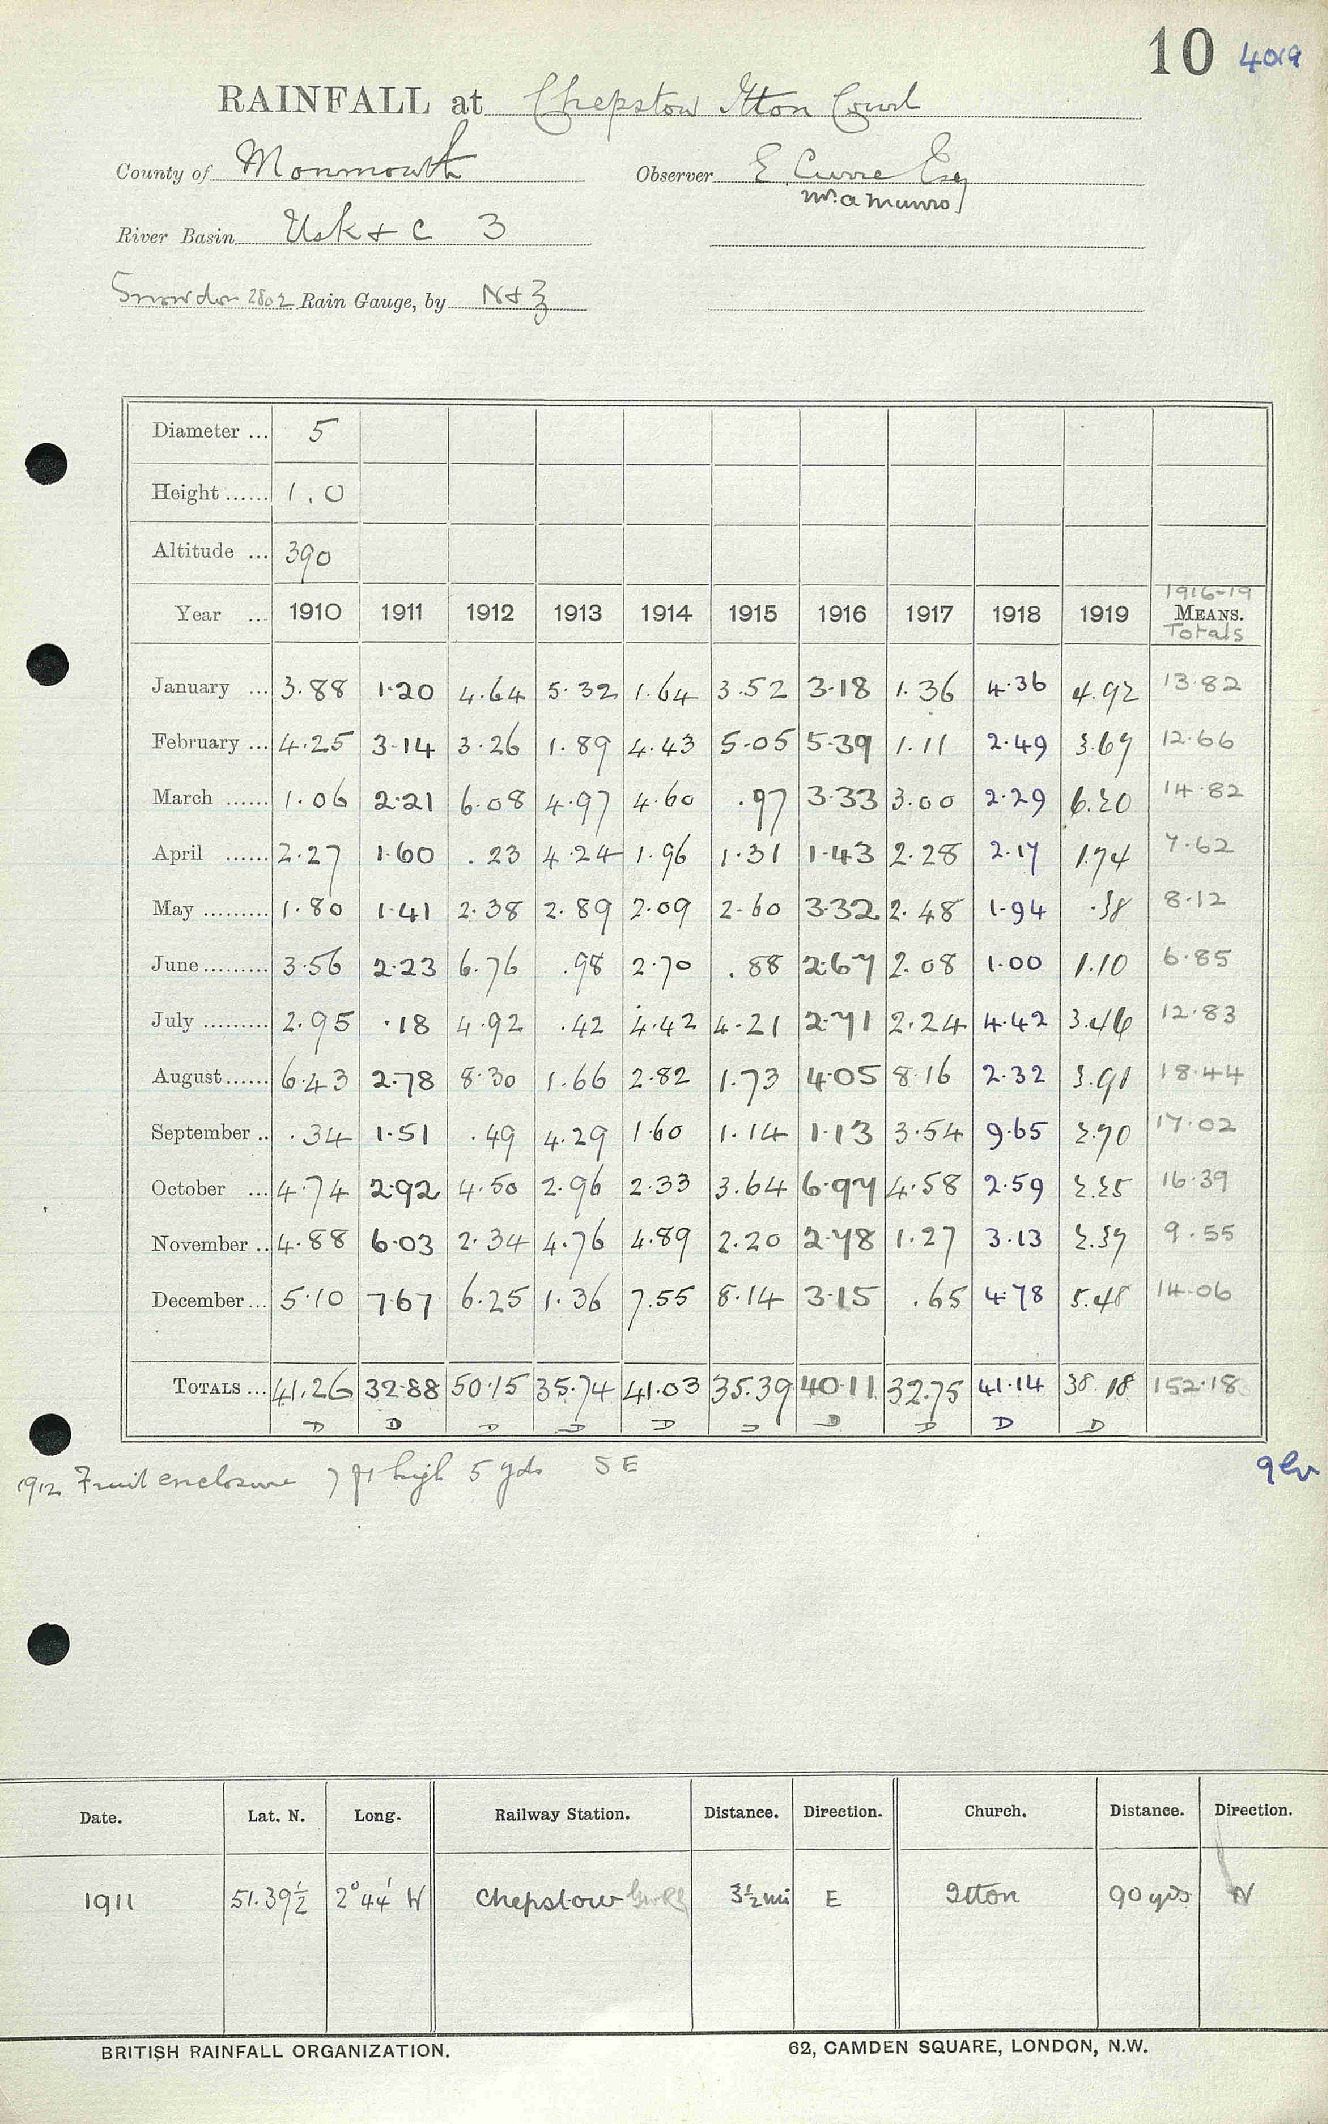 10 4019
RAINFALL at Chepstow Itton Court
County of Monmouth Observer E Curre Esq
Mr. A Munro
River Basin Usk + C 3
Snowdon 2802 Rain Gauge, by N + Z
Diameter ... 5
Height ...... 1.0
Altitude ... 390
1916-19
Year ... 1910 1911 1912 1913 1914 1915 1916 1917 1918 1919 MEANS.
Totals
January ... 3.88 1.20 4.64 5.32 1.64 3.52 3.18 1.36 4.36 4.92 13.82
February ... 4.25 3.14 3.26 1.89 4.43 5.05 5.39 1.11 2.49 3.67 12.66
March ...... 1.06 2.21 6.08 4.97 4.60 .97 3.33 3.00 2.29 6.20 14.82
April ...... 2.27 1.60 .23 4.24 1.96 1.31 1.43 2.28 2.17 1.74 7.62
May ......... 1.80 1.41 2.38 2.89 2.09 2.60 3.32 2.48 1.94 .38 8.12
June ......... 3.56 2.23 6.76 .98 2.70 .88 2.67 2.08 1.00 1.10 6.85
July ......... 2.95 .18 4.92 .42 4.42 4.21 2.71 2.24 4.42 3.46 12.83
August ...... 6.43 2.78 8.30 1.66 2.82 1.73 4.05 8.16 2.32 3.91 18.44
September .. .34 1.51 .49 4.29 1.60 1.14 1.13 3.54 9.65 2.70 17.02
October ... 4.74 2.92 4.50 2.96 2.33 3.64 6.97 4.58 2.59 2.25 16.39
November .. 4.88 6.03 2.34 4.76 4.89 2.20 2.78 1.27 3.13 2.37 9.55
December ... 5.10 7.67 6.25 1.36 7.55 8.14 3.15 .65 4.78 5.48 14.06
TOTALS ... 41.26 32.88 50.15 35.74 41.03 35.39 40.11 32.75 41.14 38.18 152.18
D D D D D D D D D D
1912 Fruit enclosure 7 ft high 5 yds SE
Date. Lat. N. Long. Railway Station. Distance. Direction. Church. Distance. Direction.
1911 51.39½ 2° 44' W Chepstow 3½ mi E Itton 90 yds N
BRITISH RAINFALL ORGANIZATION. 62, CAMDEN SQUARE, LONDON, N.W.